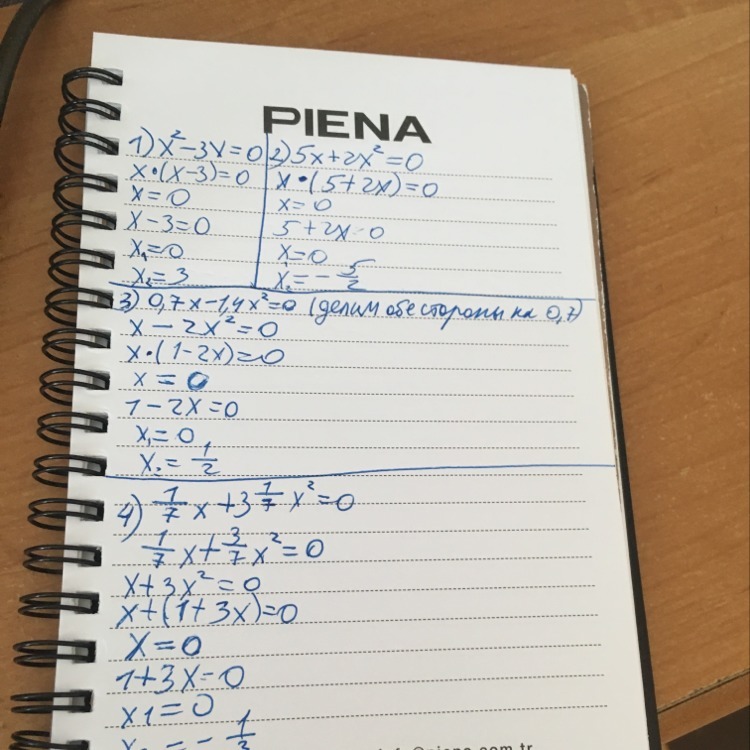 PIENA
1) x²-3x=0
x•(x-3)=0
x=0
x-3=0
x₁=0
x₂=3
2) 5x+2x²=0
x•(5+2x)=0
x=0
5+2x=0
x=0
x₂=-5/2
3) 0,7x-1,4x²=0 (делим обе стороны на 0,7)
x-2x²=0
x•(1-2x)=0
x=0
1-2x=0
x₁=0
x₂=1/2
4) 1/7x+3 1/7x²=0
1/7x+3/7x²=0
x+3x²=0
x+(1+3x)=0
x=0
1+3x=0
x1=0
=-1/3